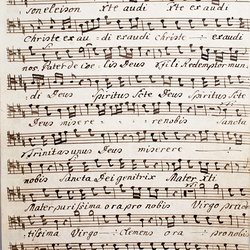 son eleison Xte audi Xte ex audi
Christe ex au di exaudi Christe exaudi
nos. Pater de coe lis Deus fili Redemptor mun,
di Deus Spiritus Scte Deus Spiritus Scte
Deus misere re nobis Sancta
Trinitas unus Deus miserere
nobis Sancta Dei genitrix Mater Xti
Mater purissima ora pro nobis Virgo
tissima Virgo Clemens ora pro nobis